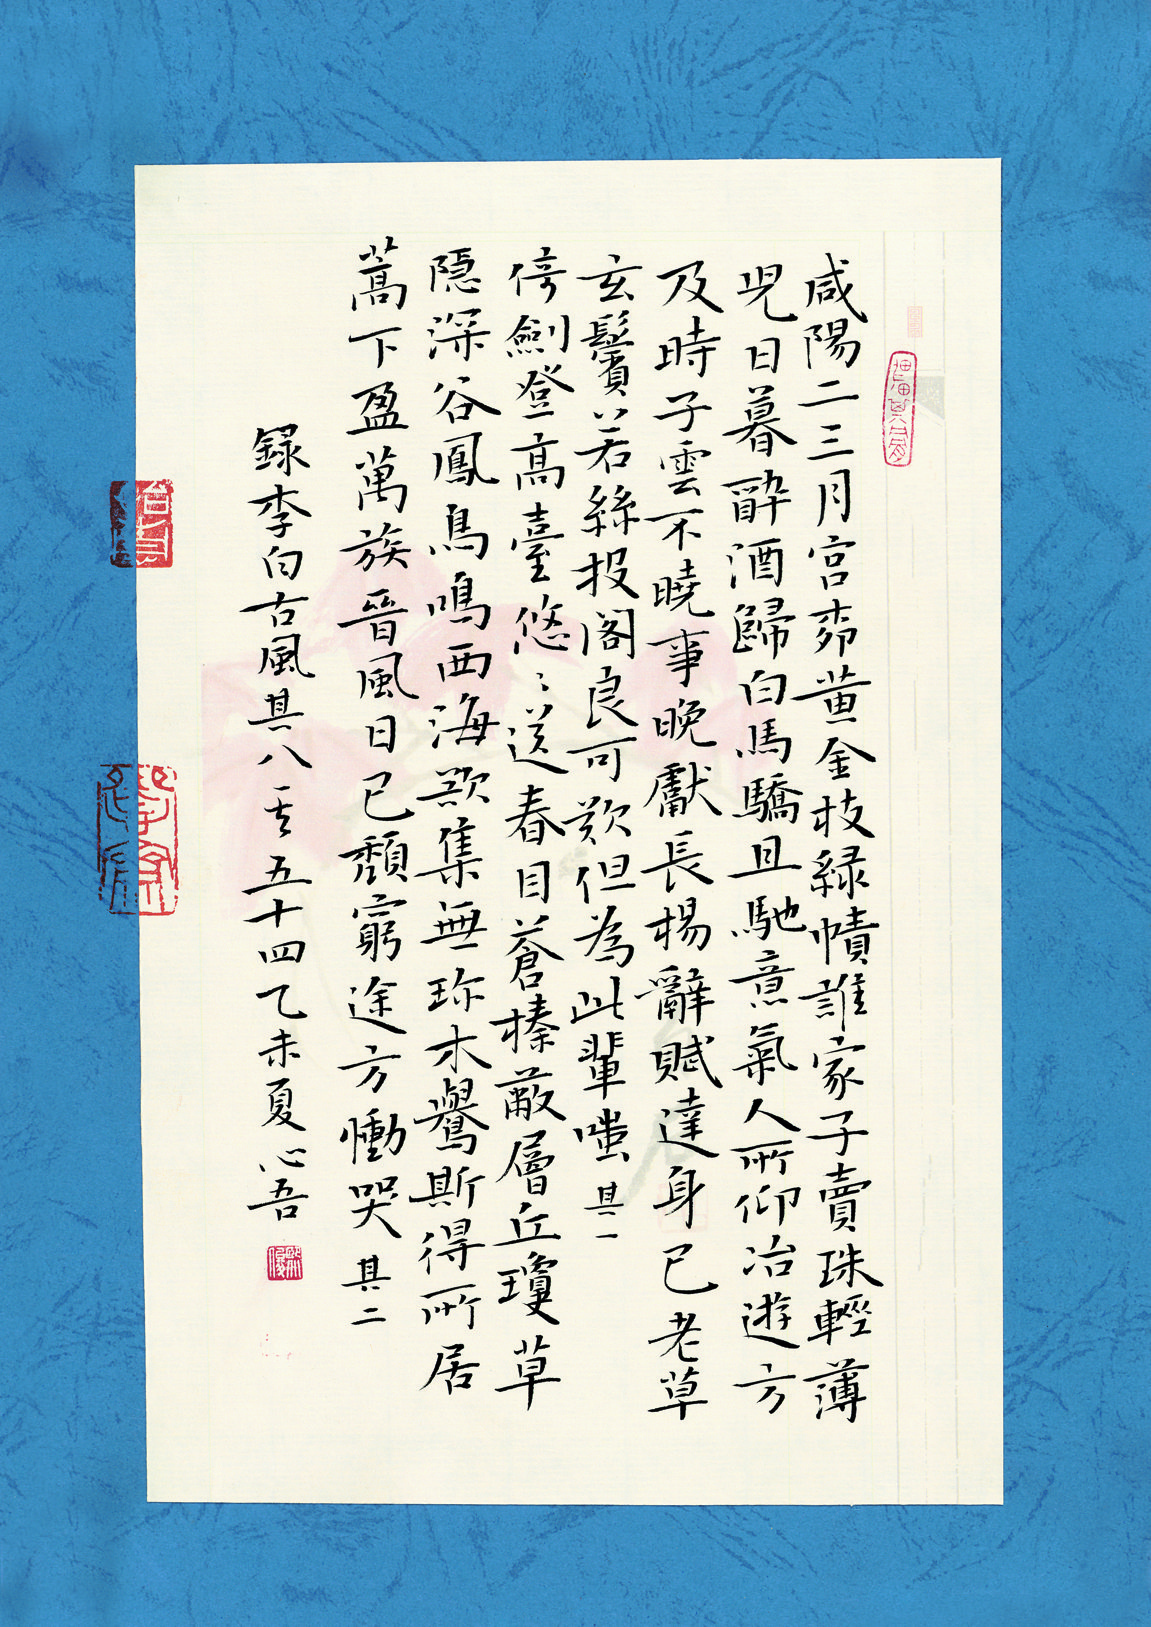 咸陽二三月宮柳黃金枝綠幘誰家子賣珠輕薄
兒日暮醉酒歸白馬驕且馳意氣人所仰冶遊方
及時子雲不曉事晚獻長楊辭賦達身已老草
玄鬢若絲投閣良可歎但為此輩嗤 其一
倚劍登高臺悠〻送春目蒼榛蔽層丘瓊草
隱深谷鳳鳥鳴西海欲集無珎木鸒斯得所居
蒿下盈萬族晉風日已頹窮途方慟哭 其二
錄李白古風其八 其五十四乙未夏心吾